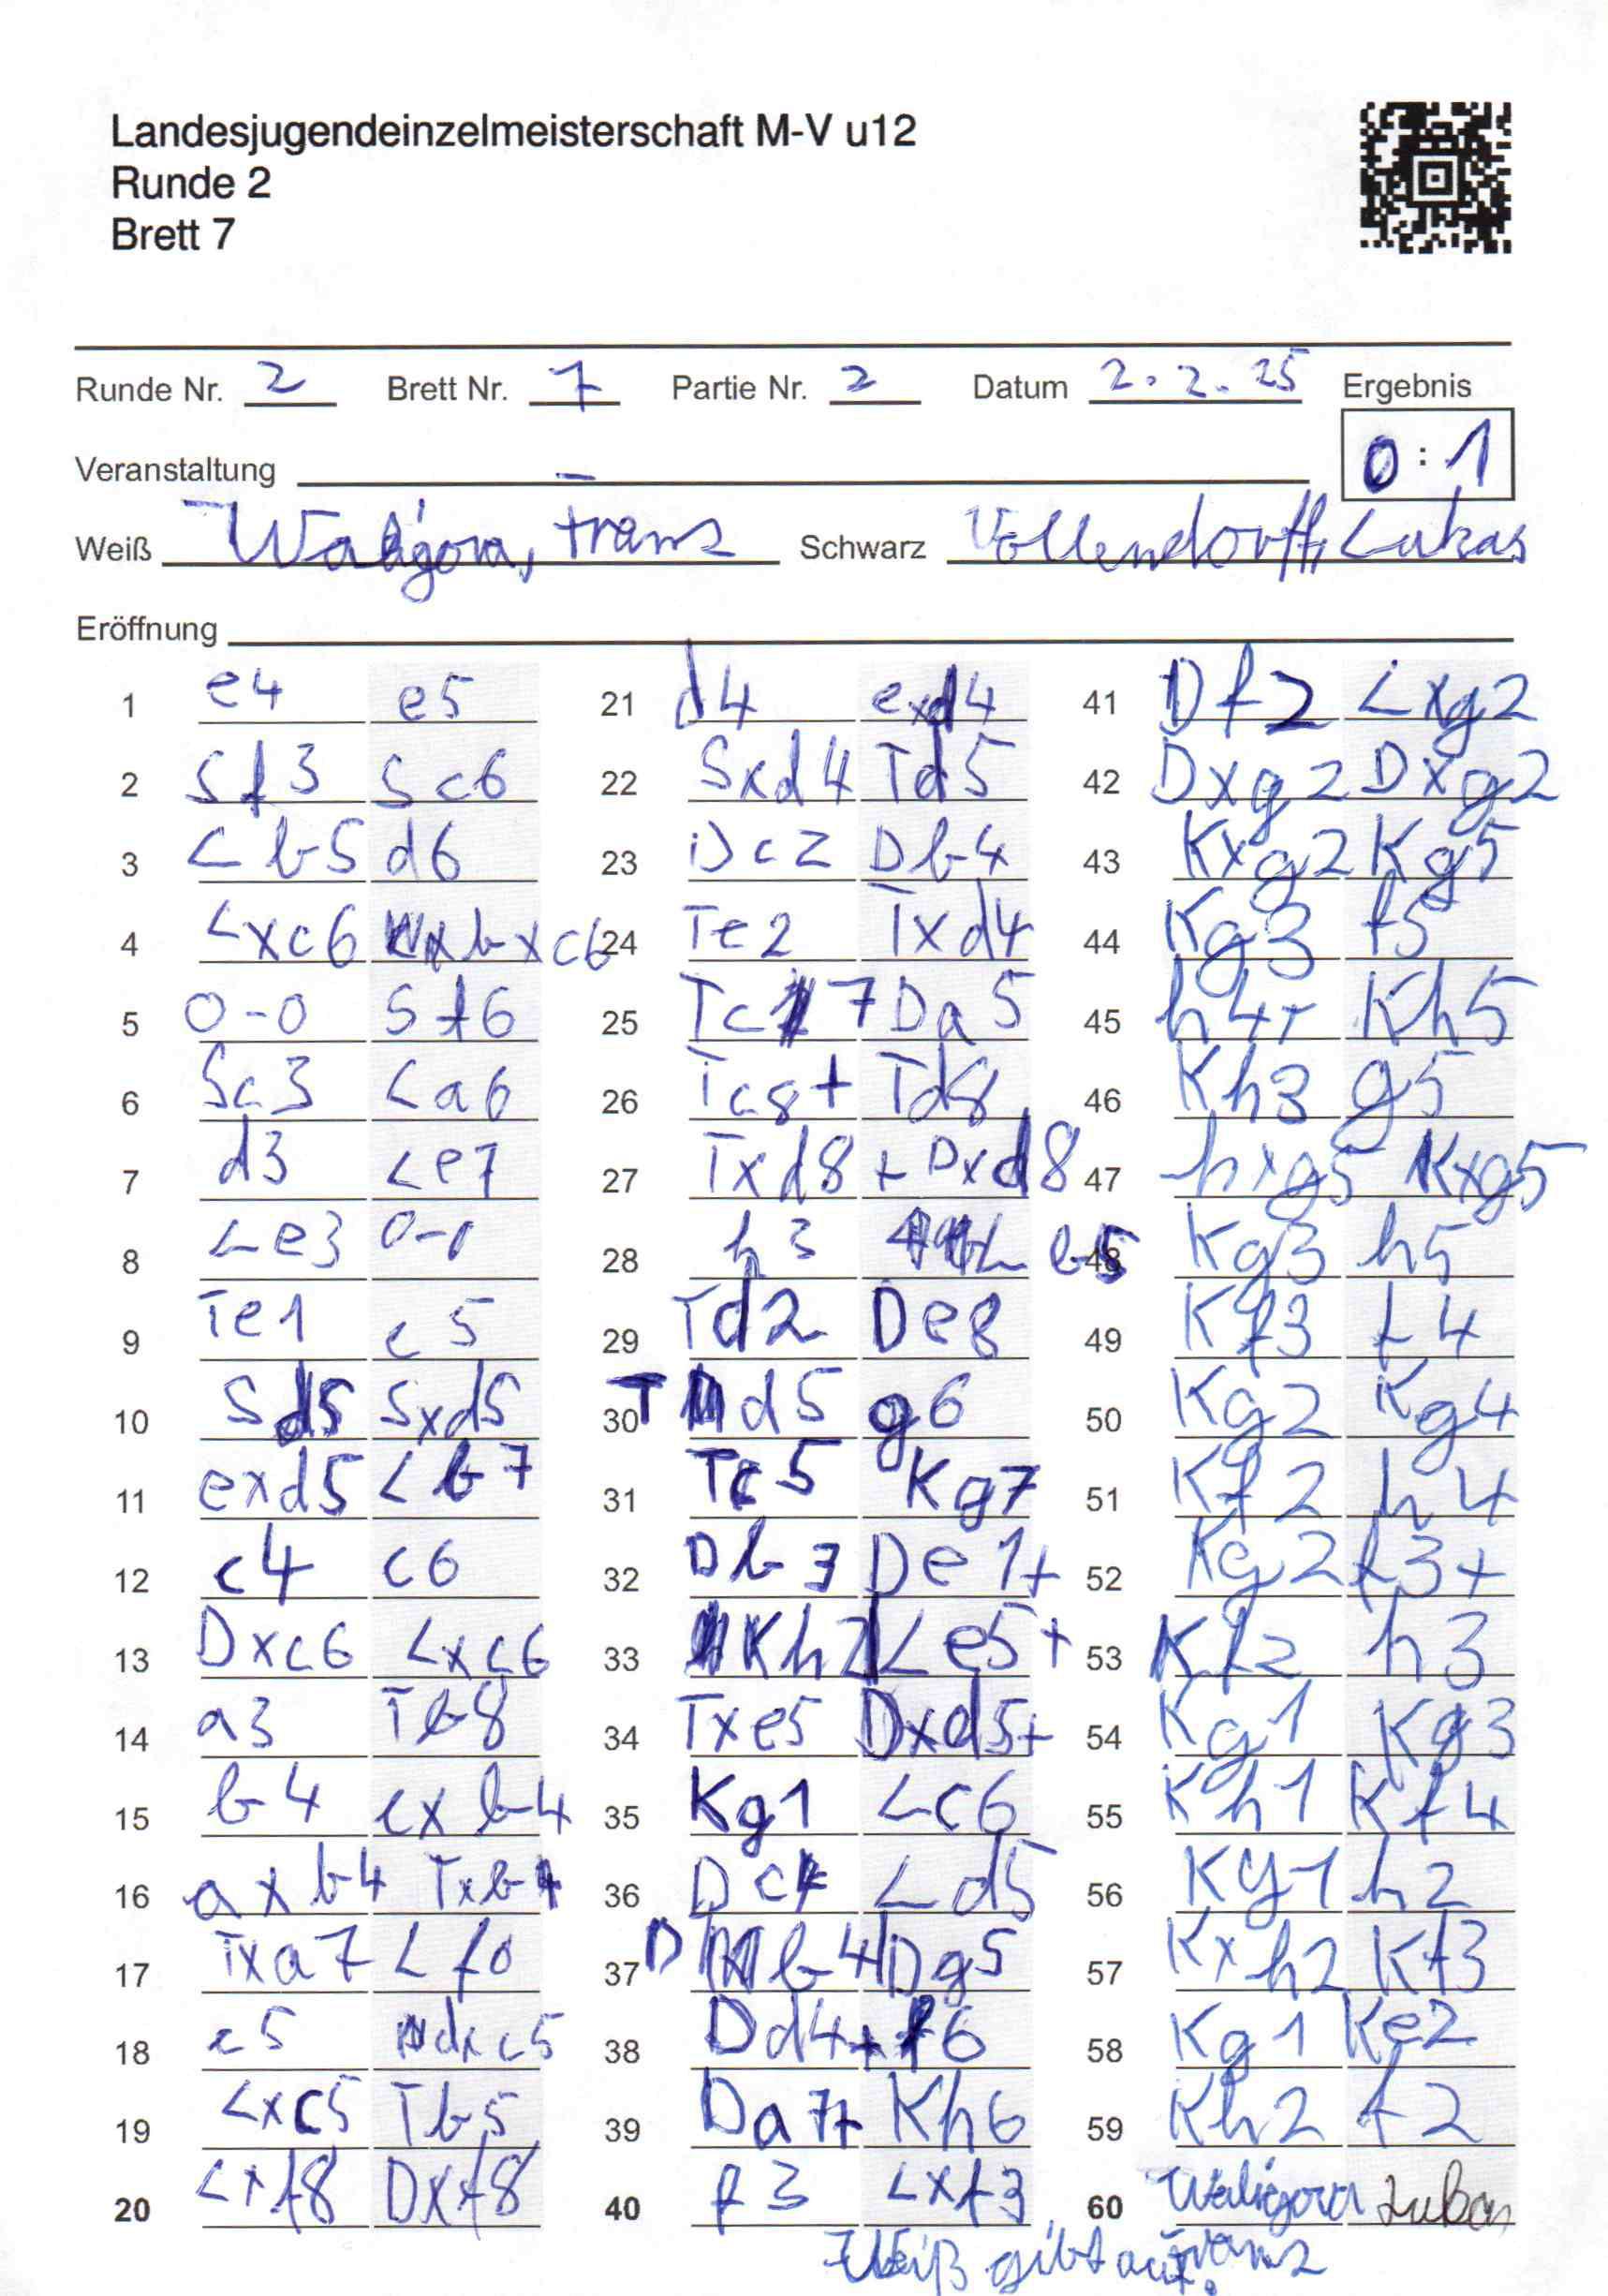 Landesjugendeinzelmeisterschaft M-V u12
Runde 2
Brett 7
Runde Nr. 2 Brett Nr. 7 Partie Nr. 2 Datum 2.2.25 Ergebnis
Veranstaltung – 0 : 1
Weiß Waligora, Franz Schwarz Vollendorff, Lukas
Eröffnung
1 e4 e5 21 d4 exd4 41 Df2 Lxg2
2 Sf3 Sc6 22 Sxd4 Td5 42 Dxg2 Dxg2
3 Lb5 d6 23 Dc2 Db4 43 Kxg2 Kg5
4 Lxc6 bxc6 24 Te2 Txd4 44 Kg3 f5
5 0-0 Sf6 25 Tc7 Da5 45 h4+ Kh5
6 Sc3 La6 26 Tc8+ Td8 46 Kh3 g5
7 d3 Le7 27 Txd8+ Dxd8 47 hxg5 Kxg5
8 Le3 0-0 28 h3 b5 48 Kg3 h5
9 Te1 c5 29 Td2 De8 49 Kf3 f4
10 Sd5 Sxd5 30 Td5 g6 50 Kg2 Kg4
11 exd5 Lb7 31 Tc5 Kg7 51 Kf2 h4
12 c4 c6 32 Db3 De1+ 52 Kg2 f3+
13 Dxc6 Lxc6 33 Kh2 Le5+ 53 Kf2 h3
14 a3 Tb8 34 Txe5 Dxd5+ 54 Kg1 Kg3
15 b4 cxb4 35 Kg1 Lc6 55 Kh1 Kf4
16 axb4 Txb4 36 Dc4 Ld5 56 Kg1 h2
17 Txa7 Lf6 37 Db4 Dg5 57 Kxh2 Kf3
18 c5 dxc5 38 Dd4+ f6 58 Kg1 Ke2
19 Lxc5 Tb5 39 Da7+ Kh6 59 Kh2 f2
20 Lxf8 Dxf8 40 f3 Lxf3 60 Waligora Lukas
Weiß gibt auf. Franz